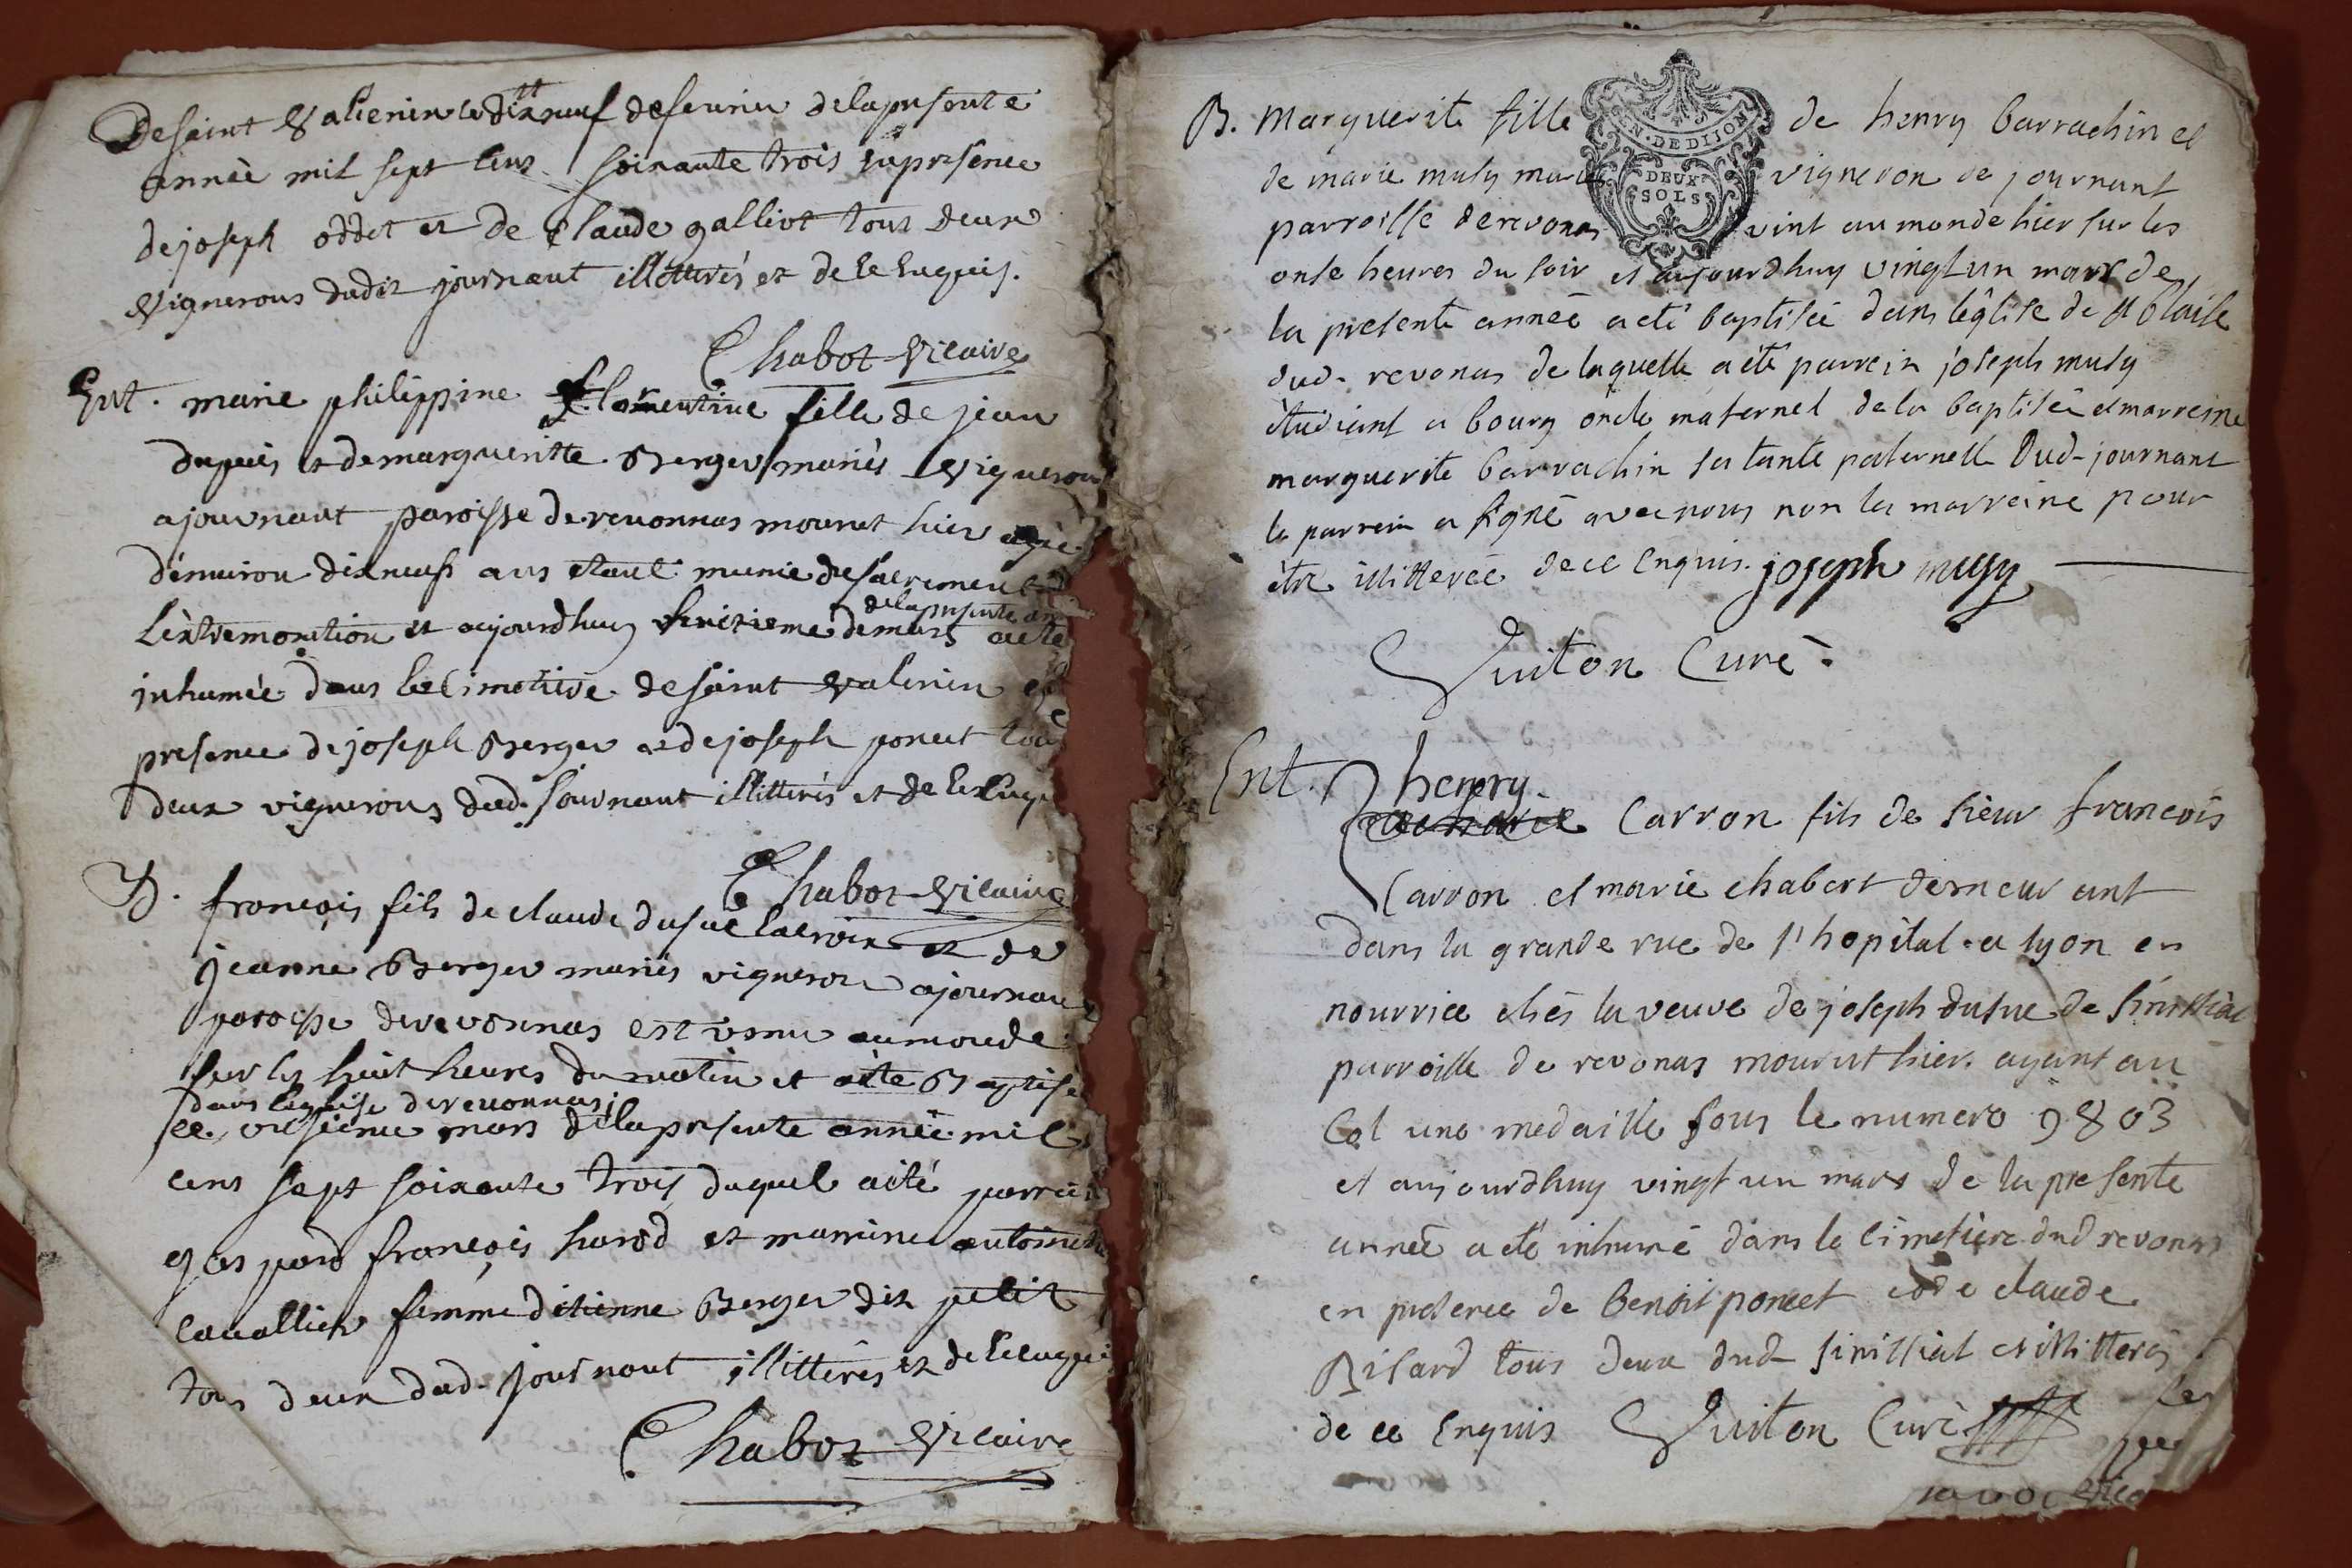 De saint Valienin le dixneuf de feurier de la presente
année mil sept cens soixante trois en presence
de joseph oddet et de Claude galliot tous deux
Vignerons dudit journant illitterés et de ce enquis.
Chabot Vicaire
Ent. marie philippine Clementine fille de jean
dupuis et de margueritte Berger mariés Vigneron
a journant paroisse de reuonnas mourut hier agée
d'enuiron dixneuf ans etant munie du sacrement de
L'extremonction et aujourdhuy seizieme de mars a eté
de la presente an
inhumée dans le Cimetiere de saint Valenin en
presence de joseph Berger et de joseph poncet tous
deux vignerons dud. Journant illitterés et de ce enqu
Chabot Vicaire
B. françois fils de claude dufue lacroix et de
jeanne Berger mariés vigneron a journan
paroisse de revonnas est venu au monde
sur les huit heures du matin et a eté Baptisé
dans l'eglise de reuonnas
ce mars de la presente année mil
cens sept soixante trois duquel a eté parrain
gaspard françois harod et marrine antoinette
Cauallier femme d'etienne Berger dit petit
tous deux dud. journant illitterés et de ce enqui
Chabot Vicaire
B. Marguerite fille de henry barrachin et
GEN. DE DIJON
DEUX
SOLS
de marie musy mariés vigneron de journant
parroisse de revonas vint au monde hier sur les
onse heures du soir et aujourdhuy vingt un mars de
la presente année a eté baptisée dans l'église de st blaise
dud. revonas de laquelle a eté parrein joseph musy
étudiant a bourg oncle maternel de la baptisée et marreine
marguerite barrachin sa tante paternelle Dud. journant
le parrein a signé avec nous non la marreine pour
être illitterée de ce enquis. joseph musy
Guiton Curé.
Ent. henry
Carron fils de sieur françois
Carron et marie chabert demeurant
dans la grande rue de l'hopital a lyon en
nourrice chés la veuve de joseph dufue de sinissiat
parroisse de revonas mourut hier. ayant au
Col une medaille sous le numero 9803
et aujourdhuy vingt un mars de la presente
année a eté inhumé dans le cimetière dud revonas
en presence de benoit poncet et de claude
Bisard tous deux dud sinissiat et illitterés
de ce Enquis Guiton Curé